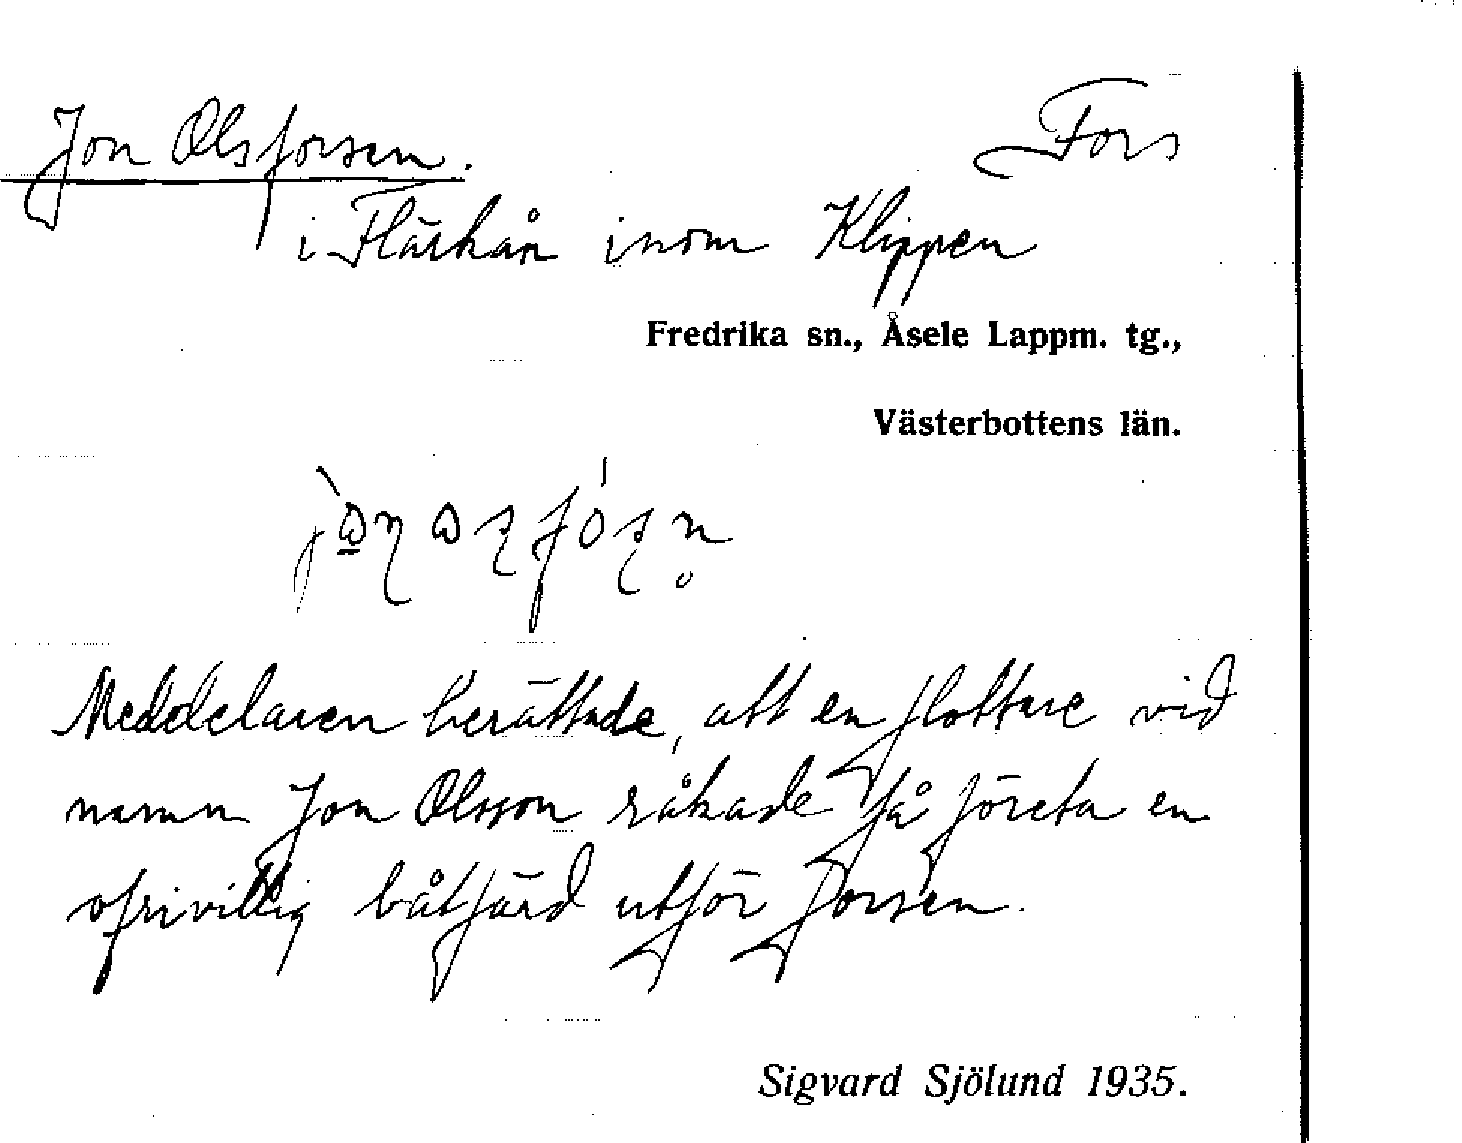 Jon Olsforsen. Fors
i Fläskån inom Klippen
Fredrika sn., Åsele Lappm. tg.,
Västerbottens län.
Meddelaren berättade, att en flottare vid
namn Jon Olsson råkade få företa en
ofrivillig båtfärd utför forsen.
Sigvard Sjölund 1935.